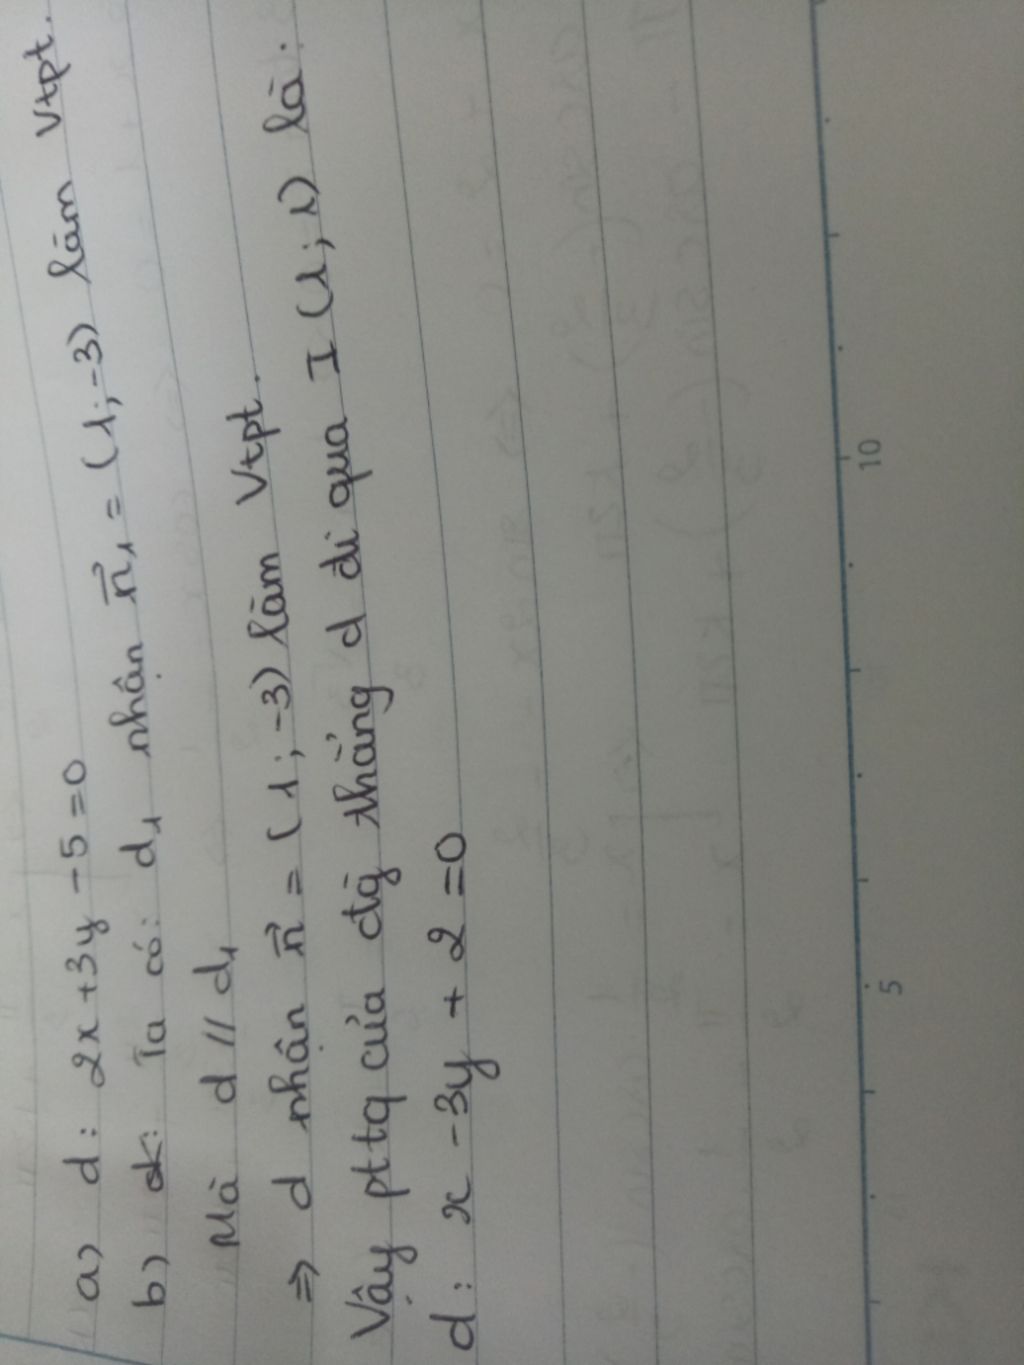 a) d: 2x + 3y - 5 = 0
b) Ta có: d₁ nhận n⃗₁ = (1; -3) làm Vtpt.
Mà d // d₁
⇒ d nhận n⃗ = (1; -3) làm Vtpt.
Vậy pttq của đg thẳng d đi qua I (1; 1) là:
d: x - 3y + 2 = 0
5 10